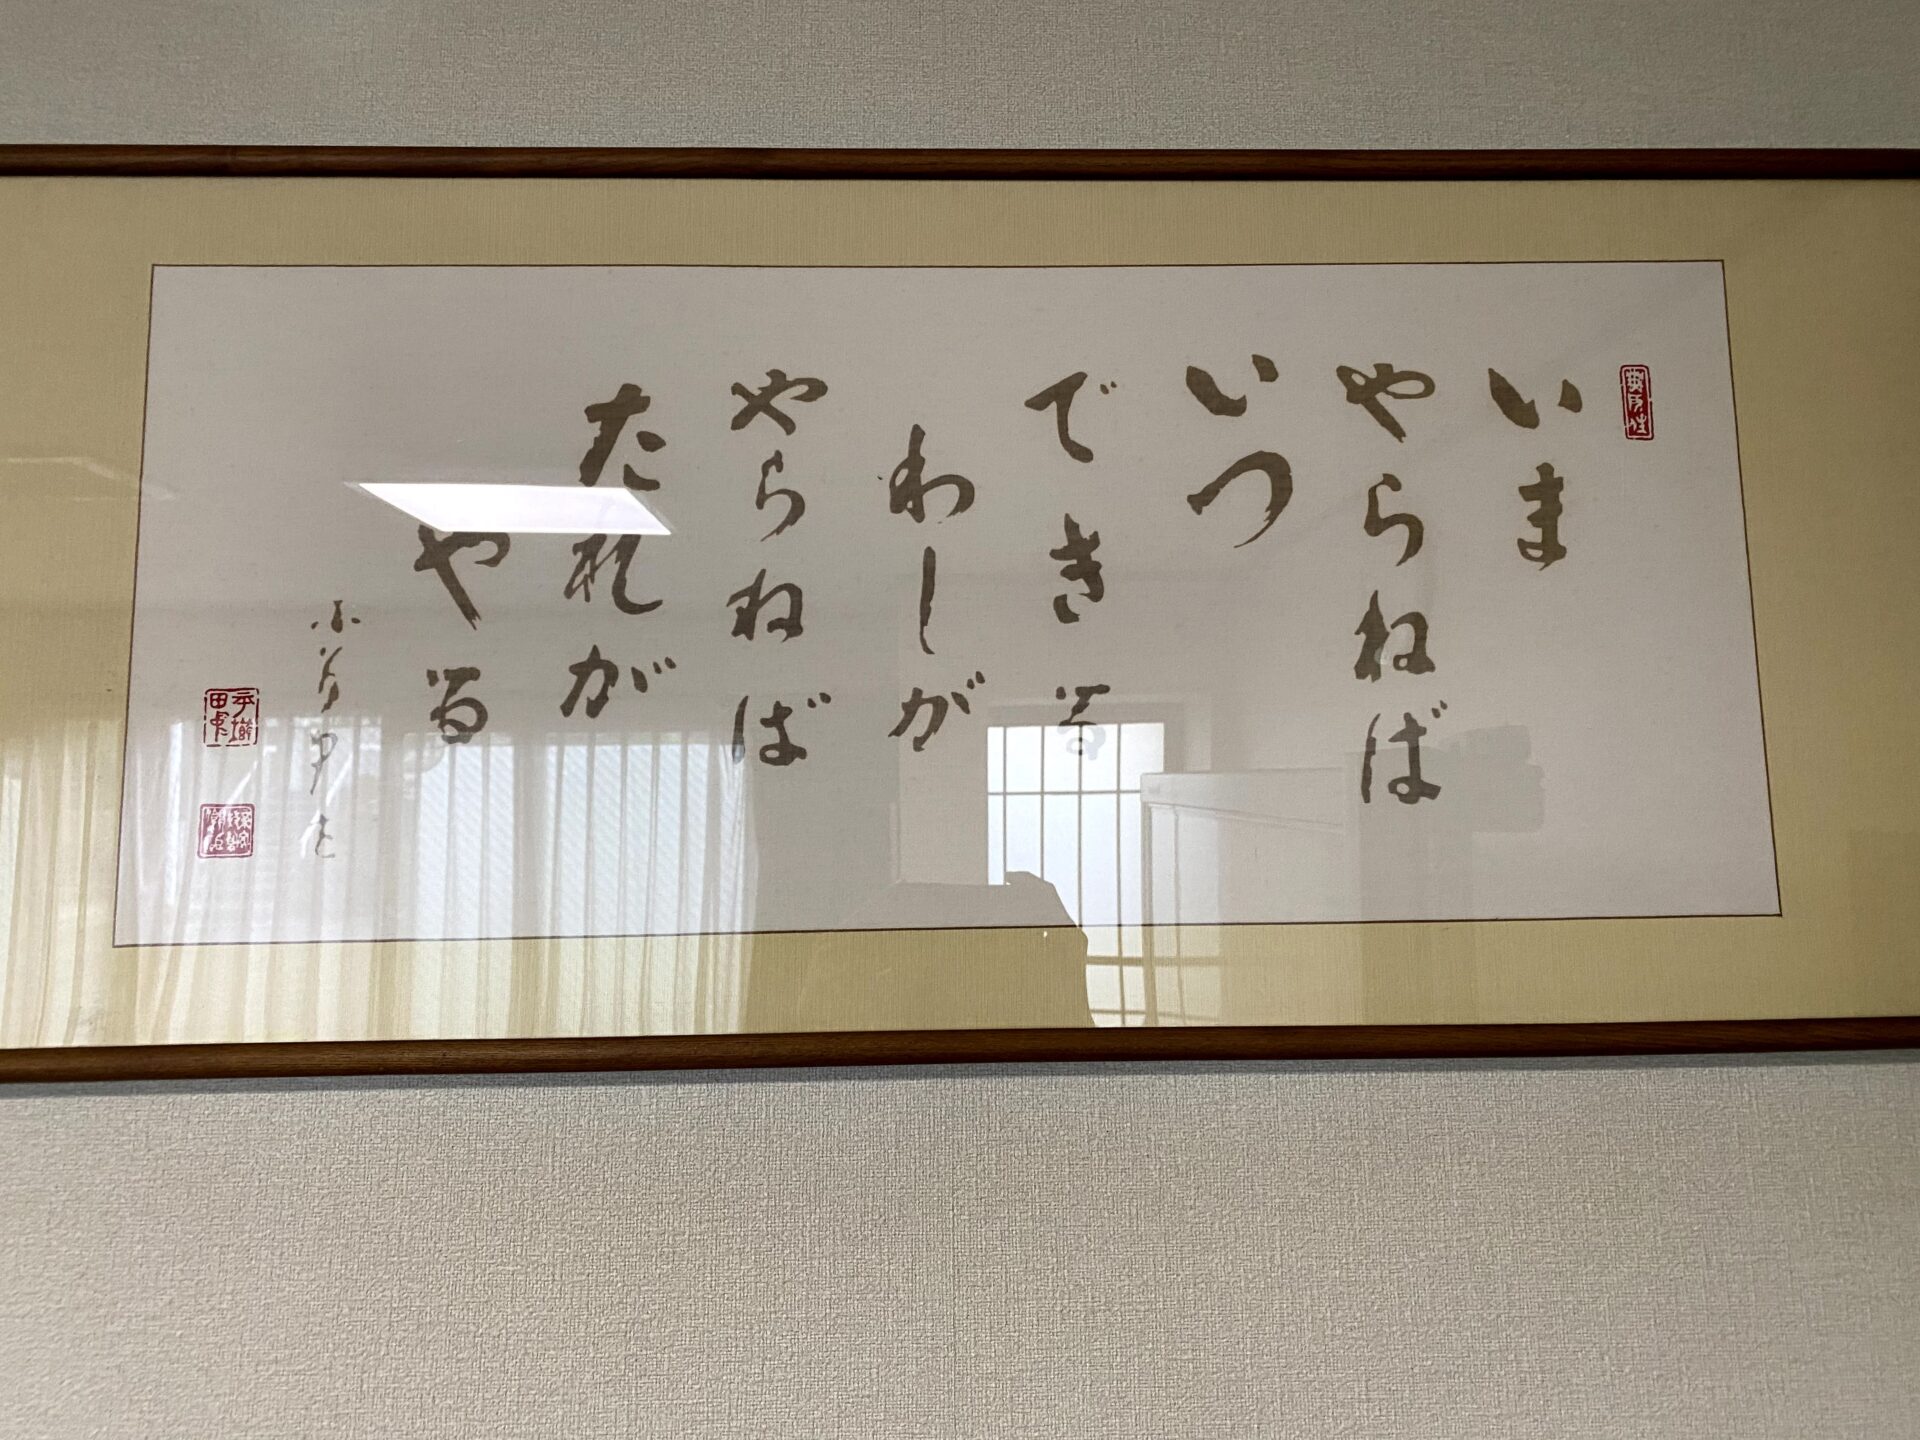 いま
やらねば
いつ
できる
わしが
やらねば
たれが
やる